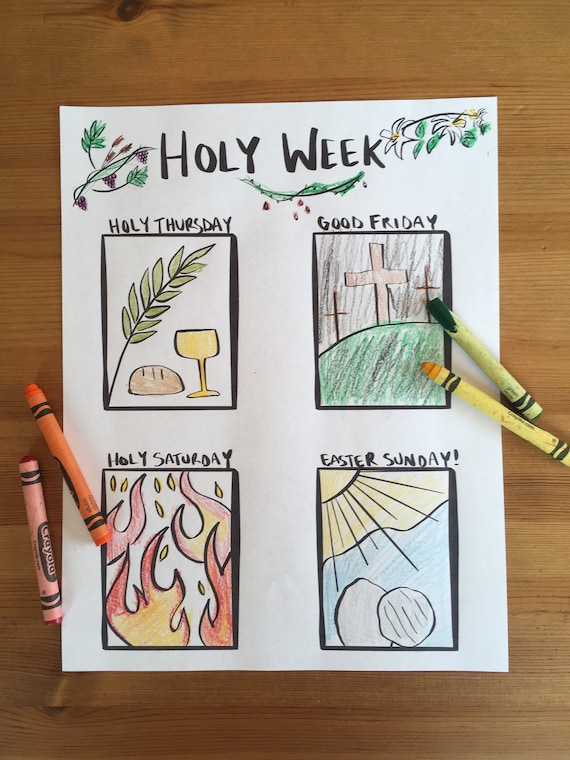 HOLY WEEK
HOLY THURSDAY
GOOD FRIDAY
HOLY SATURDAY
EASTER SUNDAY!
Crayola